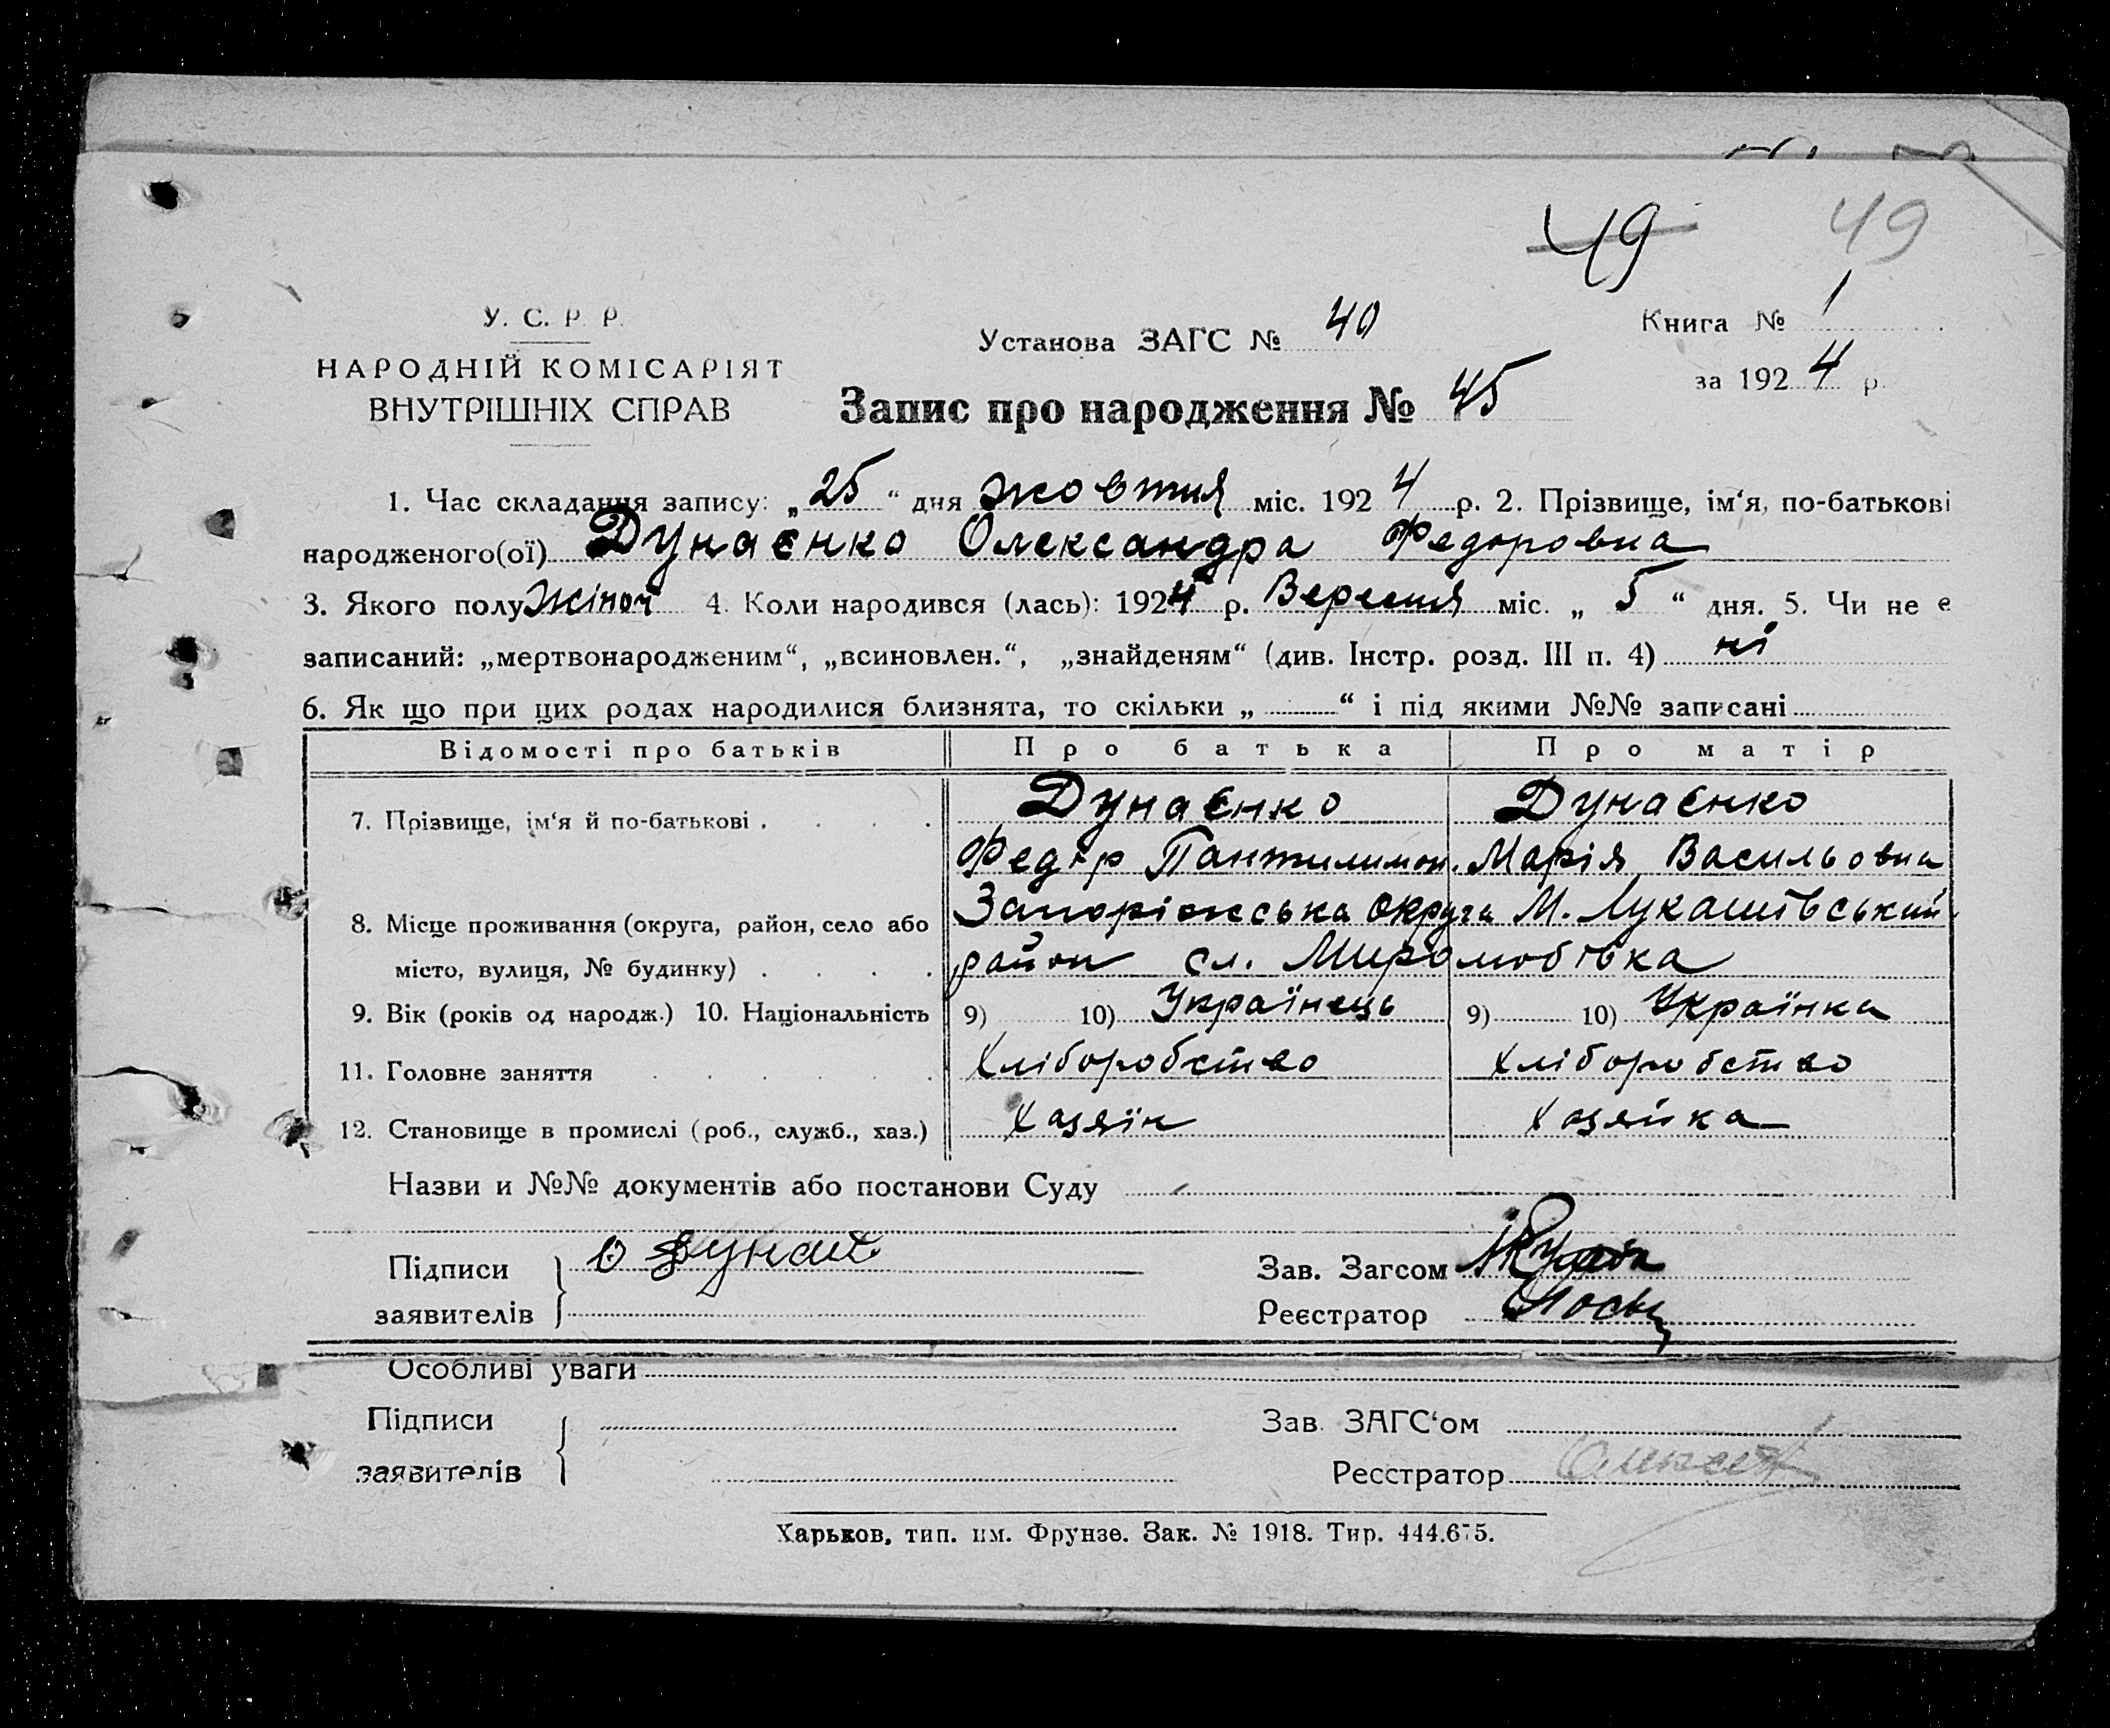 49 49
У. С. Р. Р.
НАРОДНІЙ КОМІСАРІЯТ
ВНУТРІШНІХ СПРАВ
Установа ЗАГС № 40
Книга № 1
за 1924 р.
Запис про народження № 45
1. Час складання запису: „25“ дня жовтня міс. 1924 р. 2. Прізвище, ім‘я, по-батькові
народженого(ої) Дунаєнко Олександра Федоровна
3. Якого полу Жіноч 4. Коли народився (лась): 1924 р. Вересня міс. „5“ дня. 5. Чи не є
записаний: „мертвонародженим“, „всиновлен.“, „знайденям“ (див. Інстр. розд. III п. 4) ні
6. Як що при цих родах народилися близнята, то скільки „ “ і під якими №№ записані
Відомості про батьків Про батька Про матір
7. Прізвище, ім‘я й по-батькові . Дунаєнко Дунаєнко
Федір Пантилимон. Марія Васильовна
8. Місце проживання (округа, район, село або Запоріжська округа М. Лукашівський
місто, вулиця, № будинку) . район сл. Миролюбівка
9. Вік (років од народж.) 10. Національність 9) 10) Українець 9) 10) Українка
11. Головне заняття Хліборобство Хліборобство
12. Становище в промислі (роб., служб., хаз.) Хазяїн Хазяйка
Назви и №№ документів або постанови Суду
Підписи Зав. Загсом
заявителів Реєстратор
Особливі уваги
Підписи Зав. ЗАГС‘ом
заявителів Реєстратор
Харьков, тип. им. Фрунзе. Зак. № 1918. Тир. 444.675.